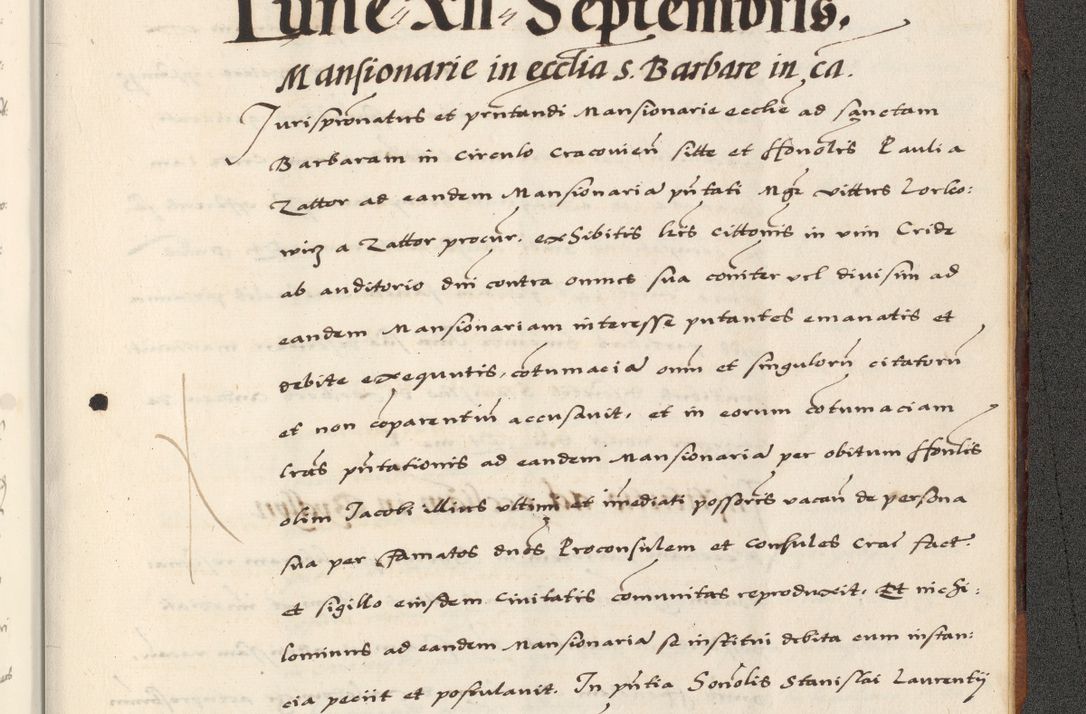 Lune XII Septembris.
Mansionarie in ecclia s. Barbare in ca.
Jurispronatus et pntandi Mansionarie ecclie ad sanctam
Barbaram in circulo Cracovien sitte et Honolis Pauli a
Zattor ad eandem Mansionaria pntati Mgr vittus Lorko:
wicz a Zattor procur. exhibitis lris cittonis in vim Cride
ab auditorio dni contra omnes sua coniter vel divisim ad
eandem Mansionariam interesse putantes emanatis et
debite exequutis, cotumacia oim et singuloru citatoru
et non coparentiu accusavit, et in eorum cotumaciam
lras pntationis ad eandem Mansionaria per obitum Honlis
olim Jacobi illius ultimi et imediati possoris vacan de persona
sua per famatos dnos Proconsulem et Consules Crac fact
et sigillo eiusdem Civitatis comunitas reproduxit, Et nichi:
lominus ad eandem Mansionaria se institui debita cum instan:
cia peciit et postulavit. In pntia honolis Stanislai Laurentij